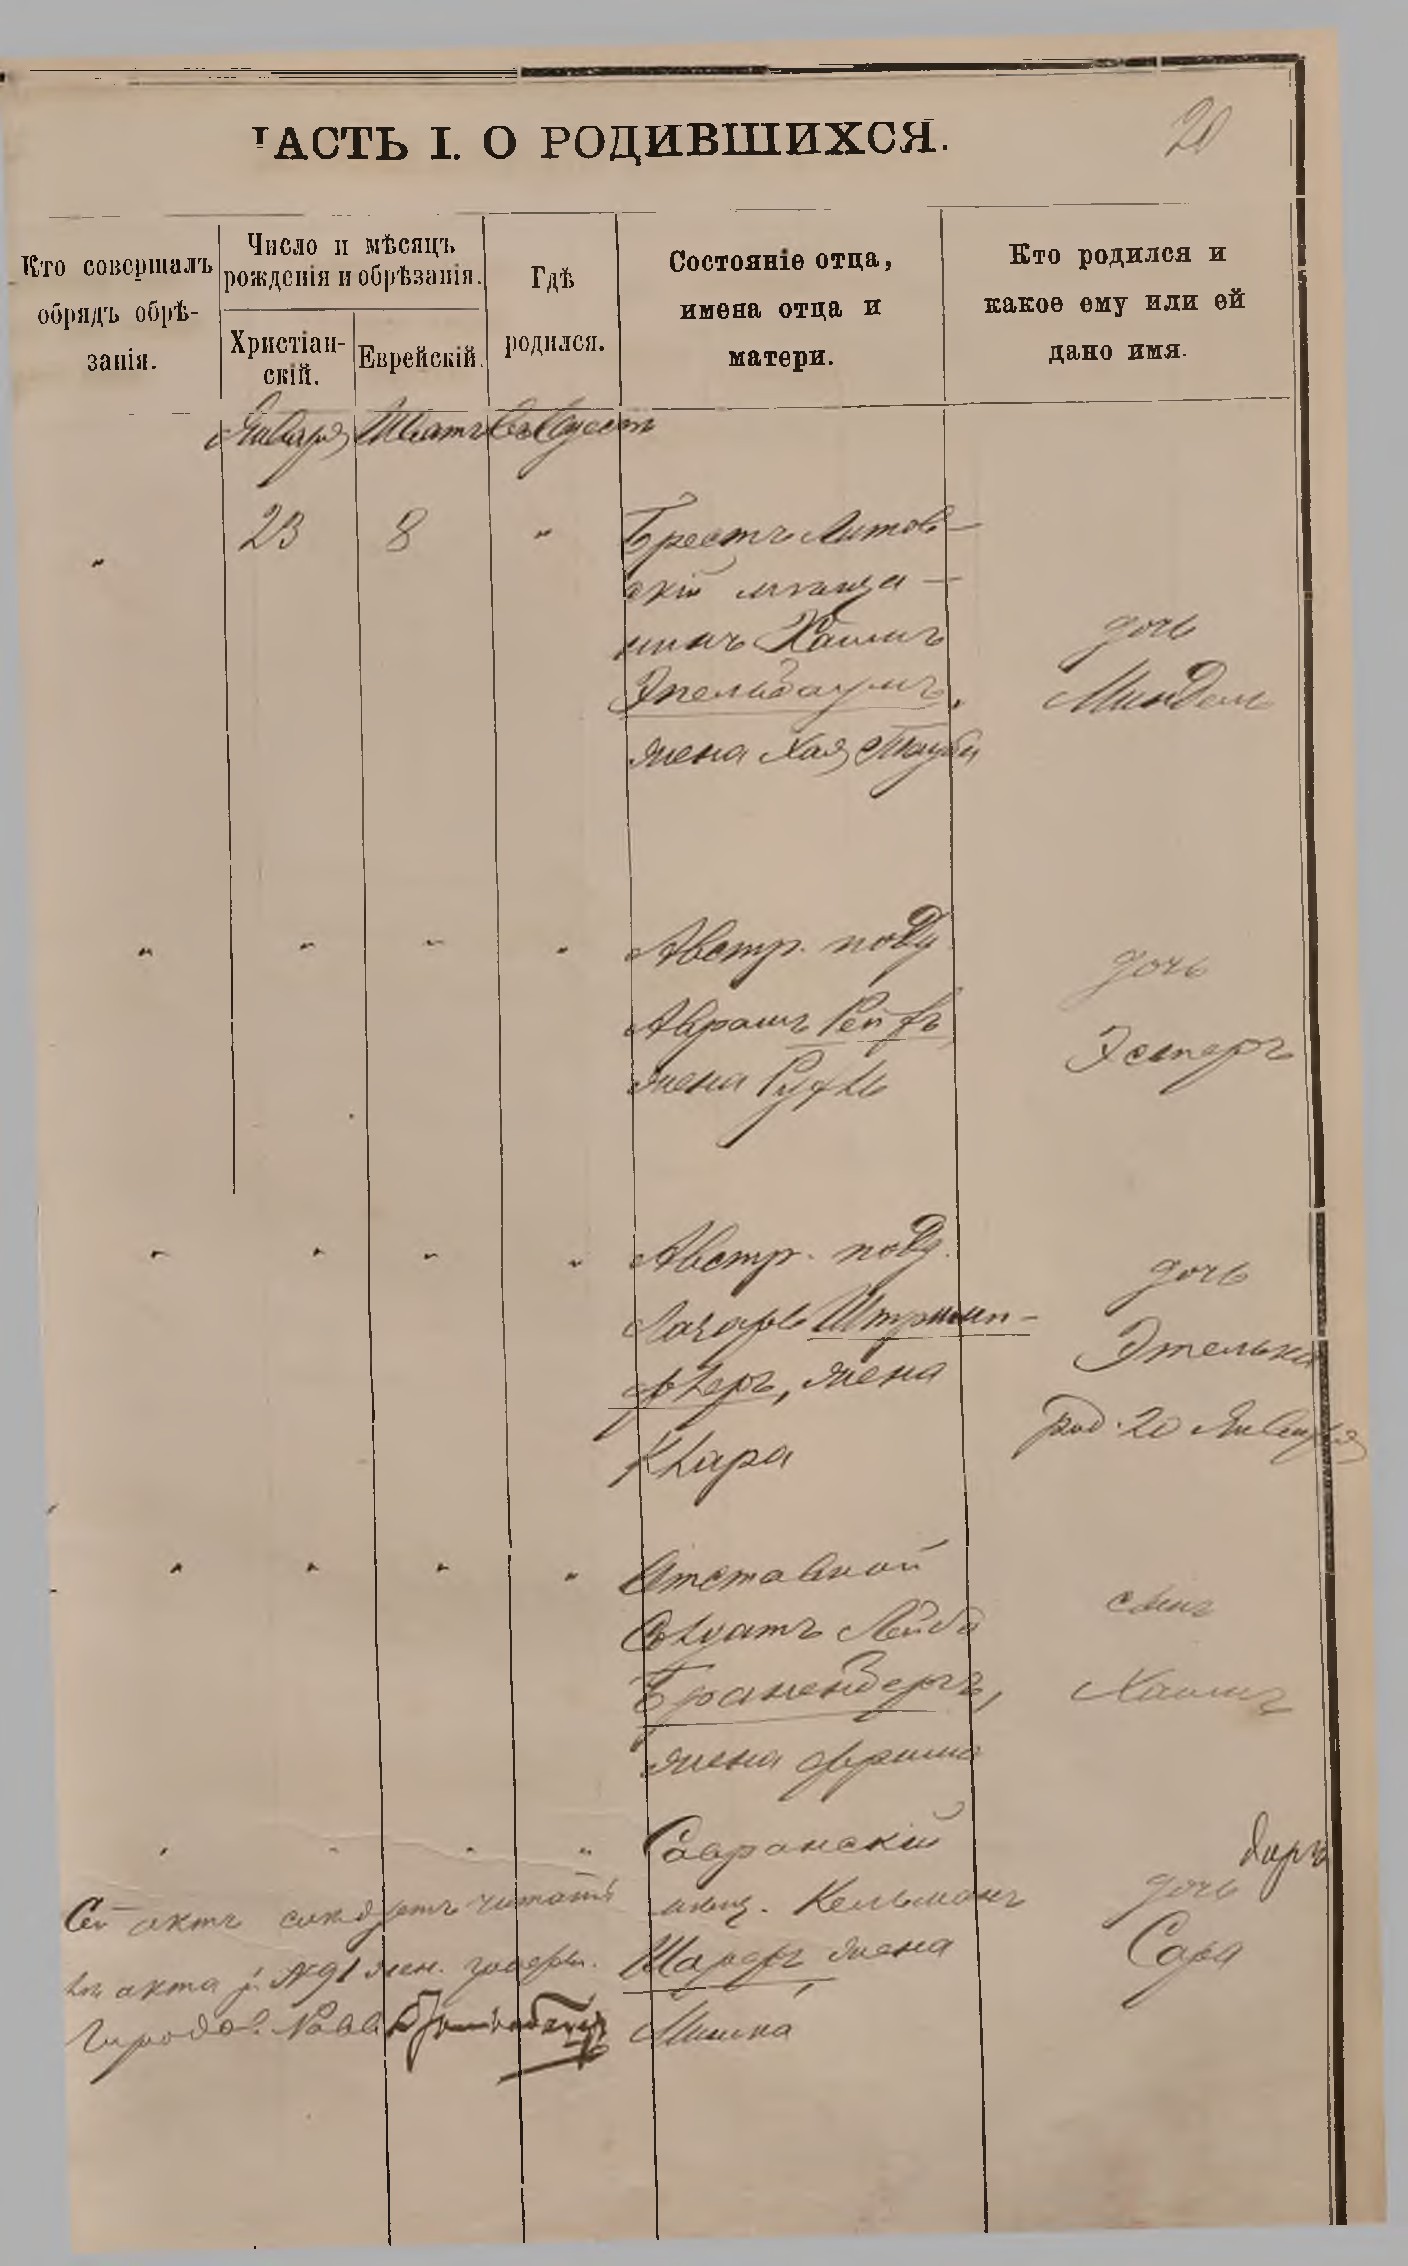 ЧАСТЬ I. О РОДИВШИХСЯ.
20
Кто совершалъ
обрядъ обрѣ-
занія.
Число и мѣсяцъ
рожденія и обрѣзанія.
Христіан-
скій.
Еврейскій.
Гдѣ
родился.
Состояніе отца,
имена отца и
матери.
Кто родился и
какое ему или ей
дано имя.
Января Шватъ въ Одессѣ
" 23 8 " Брестъ Литов-
скій мѣща-
нинъ Хаимъ
Эпельбаумъ,
жена Хая Тауба
дочь
Миндель
" " " " Австр. подд.
Аврамъ Рейфъ
жена Руфль
дочь
Эстеръ
" " " " Австр. подд.
Лазарь Штрым-
флеръ, жена
Клара
дочь
Этелька
род. 20 Января
" " " " Отставной
Солдатъ Лейба
Браненбергъ,
жена Фрима
сынъ
Хаимъ
" " " " Савранскій
мѣщ. Кельманъ
Шарфъ, жена
Минка
дочь
Сара
Сей актъ слѣдуетъ читать
акта № 91
Городов. Равв.